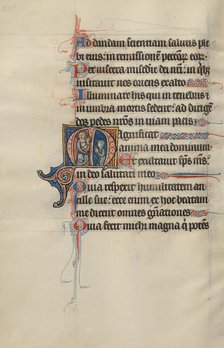 Ad dandam scientiam salutis ple
bi eius: in remissionem peccator eor.
Per viscera misericordie dei nri: in qb
visitauit nos oriens exalto
Illuminare his qui in tenebris &
in umbra mortis sedent: ad dirigen
dos pedes nros in uiam pacis
Magnificat
anima mea dominum
Et exultauit sps ms:
in deo salutari meo
Quia respexit humilitatem an
cille sue: ecce enim ex hoc beatam
me dicent omnes gnationes
Quia fecit michi magna q potes